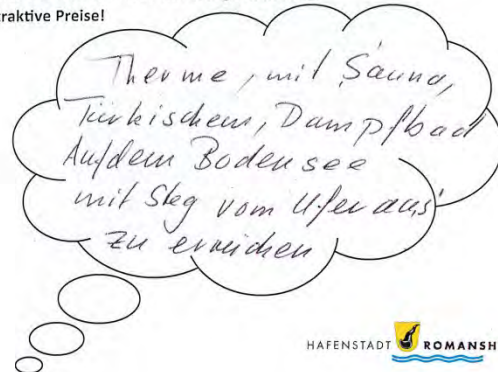 traktive Preise!
Therme, mit Sauna,
Türkischem, Dampfbad
Auf dem Bodensee
mit Steg vom Ufer aus
zu erreichen
HAFENSTADT ROMANSH